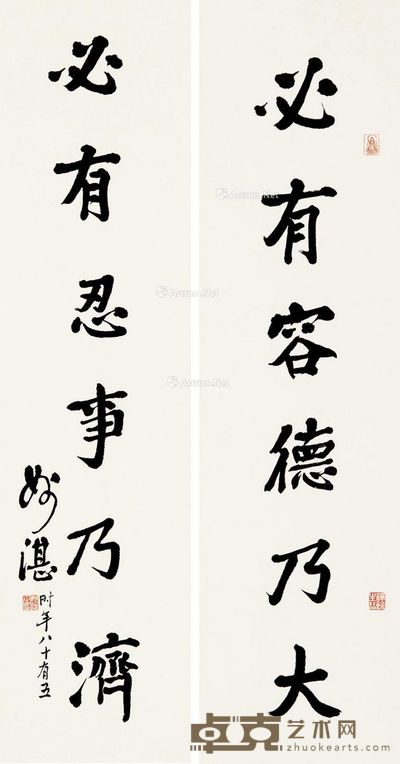 必有容德乃大
必有忍事乃濟
妙湛
时年八十有五
Artron.Net
Artron.Net
Artron.Net
卓克艺术网
zhuokearts.com